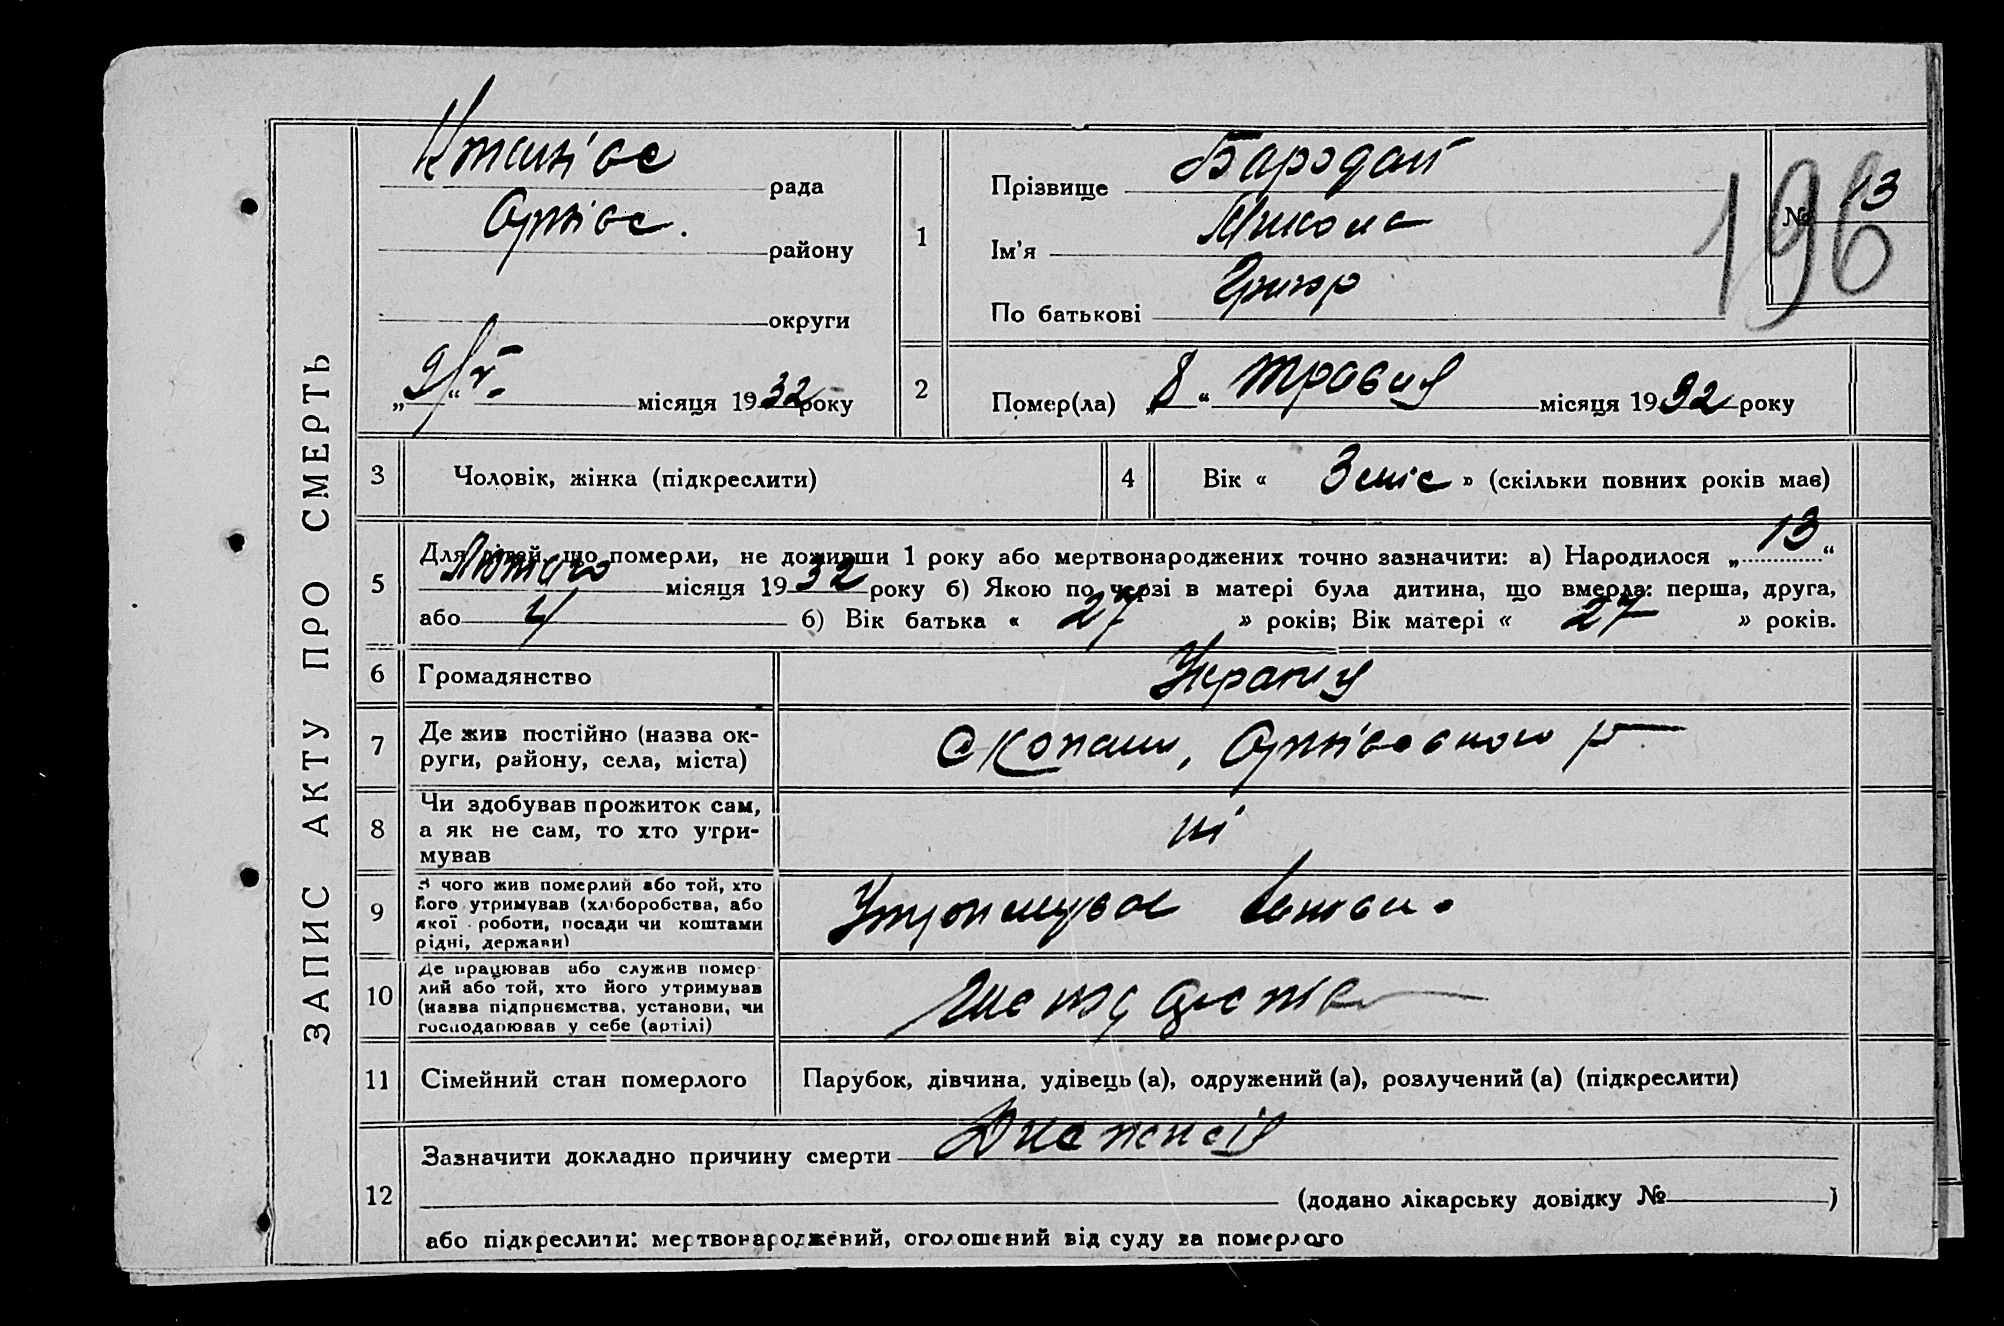 ЗАПИС АКТУ ПРО СМЕРТЬ
рада
району
округи
„9/V“ місяця 1932 року
1
Прізвище Бародай
Ім'я Микола
По батькові Григор
№ 13
196
2
Помер(ла) „8“ травня місяця 1932 року
3
Чоловік, жінка (підкреслити)
4
Вік « 3 міс » (скільки повних років має)
5
Для дітей, що померли, не доживши 1 року або мертвонароджених точно зазначити: а) Народилося „13“
Лютого місяця 1932 року б) Якою по черзі в матері була дитина, що вмерла: перша, друга,
або 4 б) Вік батька « 27 » років; Вік матері « 27 » років.
6
Громадянство
7
Де жив постійно (назва ок-
руги, району, села, міста)
8
Чи здобував прожиток сам,
а як не сам, то хто утри-
мував
ні
9
З чого жив померлий або той, хто
його утримував (хліборобства, або
якої роботи, посади чи коштами
рідні, держави)
Утримував
10
Де працював або служив помер-
лий або той, хто його утримував
(назва підприємства, установи, чи
господарював у себе (артілі)
11
Сімейний стан померлого
Парубок, дівчина, удівець (а), одружений (а), розлучений (а) (підкреслити)
12
Зазначити докладно причину смерти Диспепсія
(додано лікарську довідку № )
або підкреслити: мертвонароджений, оголошений від суду за померлого